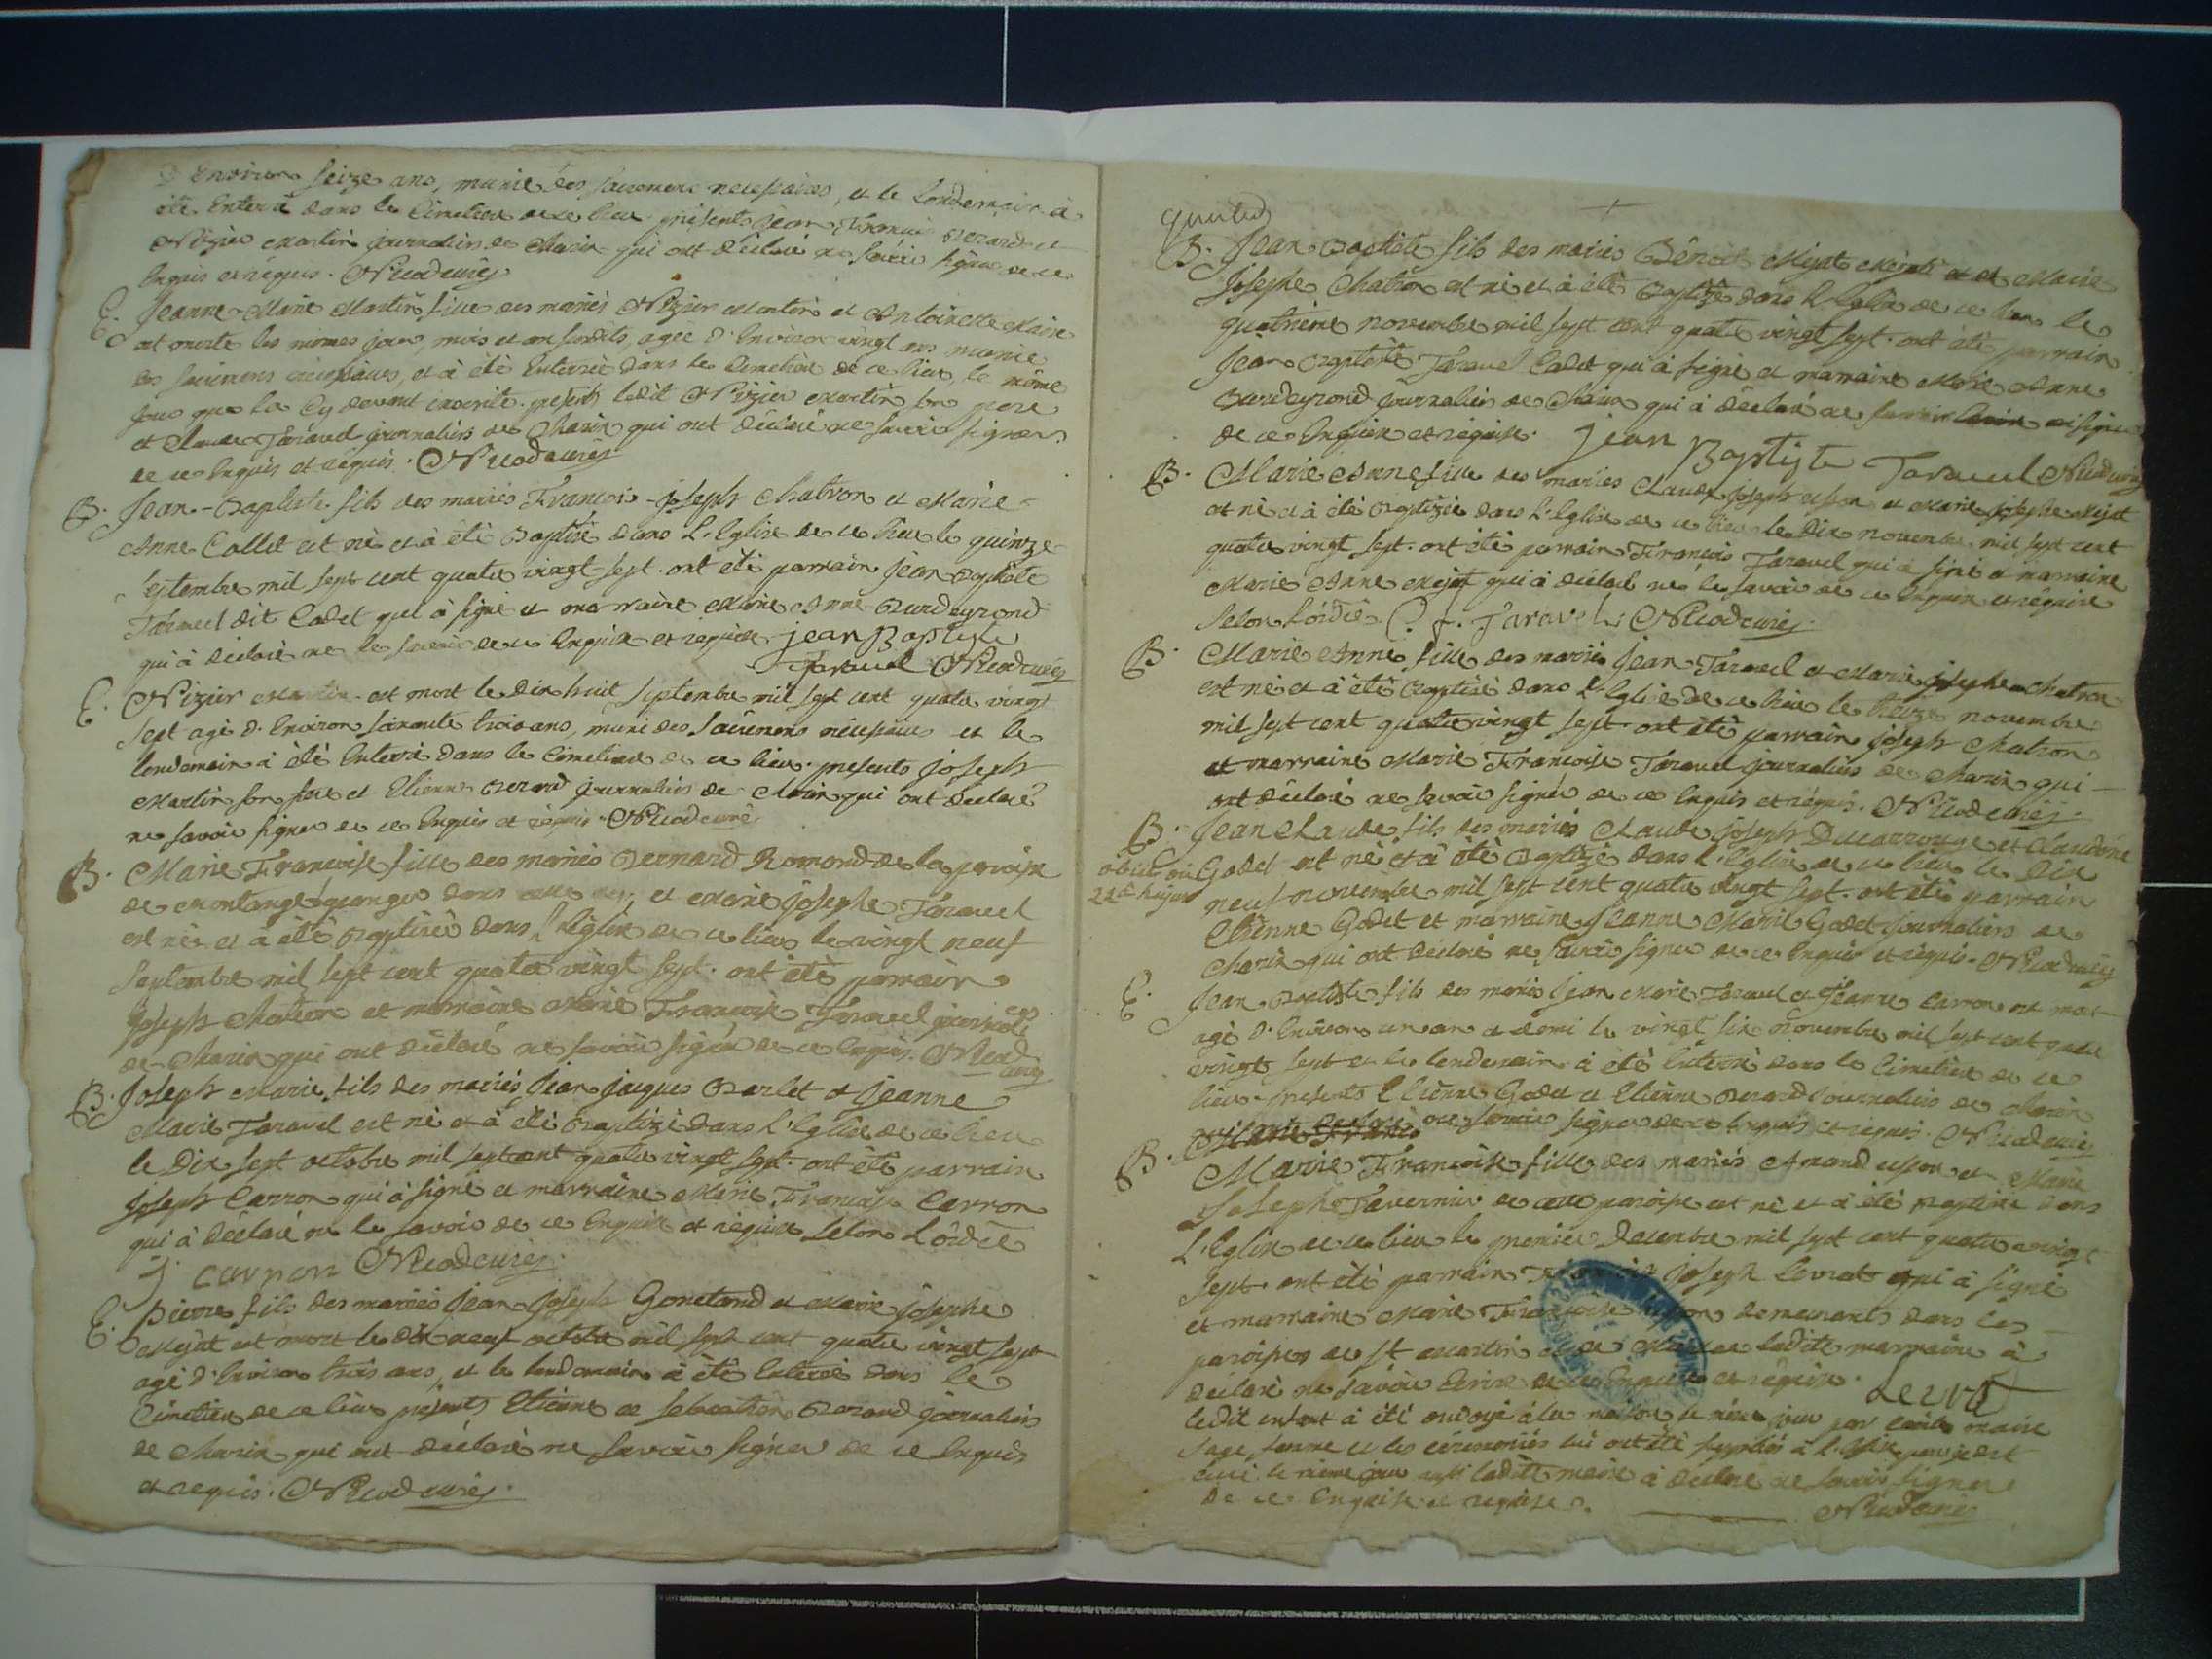 D'Environ seize ans, munie des sacremens necessaires, et le lendemain à
été Enterré dans le Cimetiere de ce lieu presents Jean François Berard et
Nizier Martin journaliers de Charix qui ont déclaré ne savoir signer de ce
Enquis et requis. Nicod curé
E. Jeanne-Marie Martin fille des mariés Nizier Martin et Antoinette
est morte les mêmes jour, mois et an susdits, agée d'Environ vingt ans munie
des sacremens nécessaires, et à été Enterrée dans le Cimetière de ce lieu le même
jour que la Cy devant inscrite. presents ledit Nizier Martin son pere
et Claude Taravel journaliers de Charix qui ont déclaré ne savoir signer
de ce Enquis et requis. Nicod curé
B. Jean-Baptiste fils des mariés François-joseph Chatron et Marie-
Anne Collet est né et à été Baptisé dans L'Eglise de ce lieu le quinze
Septembre mil sept cent quatre vingt-sept. ont été parrain jean Baptiste
Taravel dit Cadet qui à signé et marraine Marie Anne Burdeyrond
qui à déclaré ne le savoir de ce Enquise et requise jean Baptiste
Taravel Nicod curé
E. Nizier Martin est mort le dix huit septembre mil sept cent quatre vingt
sept agé d'Environ soixante trois ans, muni des Sacremens nécessaires et le
lendemain à été Enterré dans le Cimetiere de ce lieu. presents joseph
Martin son frere et Etienne Berard journaliers de Charix qui ont déclaré
ne savoir signer de ce Enquis et requis. Nicod curé
B. Marie Françoise fille des mariés Bernard Romand de la paroisse
de Montange granger dans et Marie josephe Taravel
est née et à été Baptisée dans L'Eglise de ce lieu le vingt neuf
Septembre mil sept cent quatre vingt sept. ont été parrain
joseph Chatron et marraine Marie Françoise Taravel journaliers
de Charix qui ont déclaré ne savoir signer de ce Enquis. Nicod
curé
B. Joseph Marie fils des mariés jean jacques Barlet et jeanne
Marie Taravel est né et à été Baptizé dans L'Eglise de ce lieu
le Dix sept octobre mil sept cent quatre vingt sept. ont été parrain
joseph Carron qui à signé et marraine Marie Françoise Carron
qui à Déclaré ne le savoir de ce Enquise et requise selon L'ordce
J. carron Nicod curé
E. Pierre fils des mariés jean joseph Gonetand et Marie josephe
Mejat est mort le dix neuf octobre mil sept cent quatre vingt sept
agé d'Environ trois ans, et le lendemain à été Enterré dans le
Cimetiere de ce lieu présents Etienne et Berard journaliers
de Charix qui ont déclaré ne savoir signer de ce Enquis
et requis. Nicod curé
B. Jean Baptiste fils des mariés Benoit Mejat et Marie
Josephe Chatron est né et à été Baptizé dans L'Eglise de ce lieu le
quatrieme novembre mil sept cent quatre vingt sept. ont été parrain
Jean Baptiste Taravel Cadet qui à signé et marraine Marie Anne
Burdeyrond journaliers de Charix qui à déclaré ne savoir signer
de ce Enquise et requise. jean Baptiste Taravel Nicod curé
B. Marie Anne fille des mariés Claude joseph et Marie josephe Mejat
est né et à été Baptizée dans L'Eglise de ce lieu le dix novembre mil sept cent
quatre vingt sept. ont été parrain François Taravel qui à signé et marraine
Marie Anne Mejat qui à déclaré ne le savoir de ce Enquise et requise
selon L'ordce. Taravel Nicod curé
B. Marie Anne fille des mariés Jean Taravel et Marie josephe Chatron
est né et à été Baptisée dans L'Eglise de ce lieu le treize novembre
mil sept cent quatre vingt sept. ont été parrain joseph Chatron
et marraine Marie Françoise Taravel journaliers de Charix qui
ont déclaré ne savoir signer de ce Enquis et requis. Nicod curé
B. Jean Claude fils des mariés Claude joseph Ducarrouge et Claudine
Godet est né et à été Baptizé dans L'Eglise de ce lieu le Dix
22
neuf novembre mil sept cent quatre vingt sept. ont été parrain
Etienne Godet et marraine Jeanne Marie Godet journaliers de
Charix qui ont déclaré ne savoir signer de ce Enquis et requis. Nicod curé
E. Jean Baptiste fils des mariés Jean Marie Taravel et Jeanne Carron est mort
agé d'Environ un an et demi le vingt six novembre mil sept cent quatre
vingt sept et le lendemain à été Enterré dans le Cimetiere de ce
lieu. presents Etienne Godet et Etienne Berard journaliers de Charix
ne savoir signer de ce Enquis et requis. Nicod curé
B. Marie Françoise fille des mariés Amand et Marie
Josephe Tavernier de cette paroisse est né et à été Baptisée dans
L'Eglise de ce lieu le premier Decembre mil sept cent quatre vingt
sept. ont été parrain joseph Levrat qui à signé
et marraine Marie Françoise demeurants dans les
paroisses de St Martin et de ladite marraine à
déclaré ne savoir Ecrire de ce Enquise et requise. Levrat
ledit enfant à été ondoyé à la maison le même jour par
sage femme et les cérémonies lui ont été supplées à l'Eglise
le même jour ladite à déclaré ne savoir signer
de ce Enquise et requise. Nicod curé